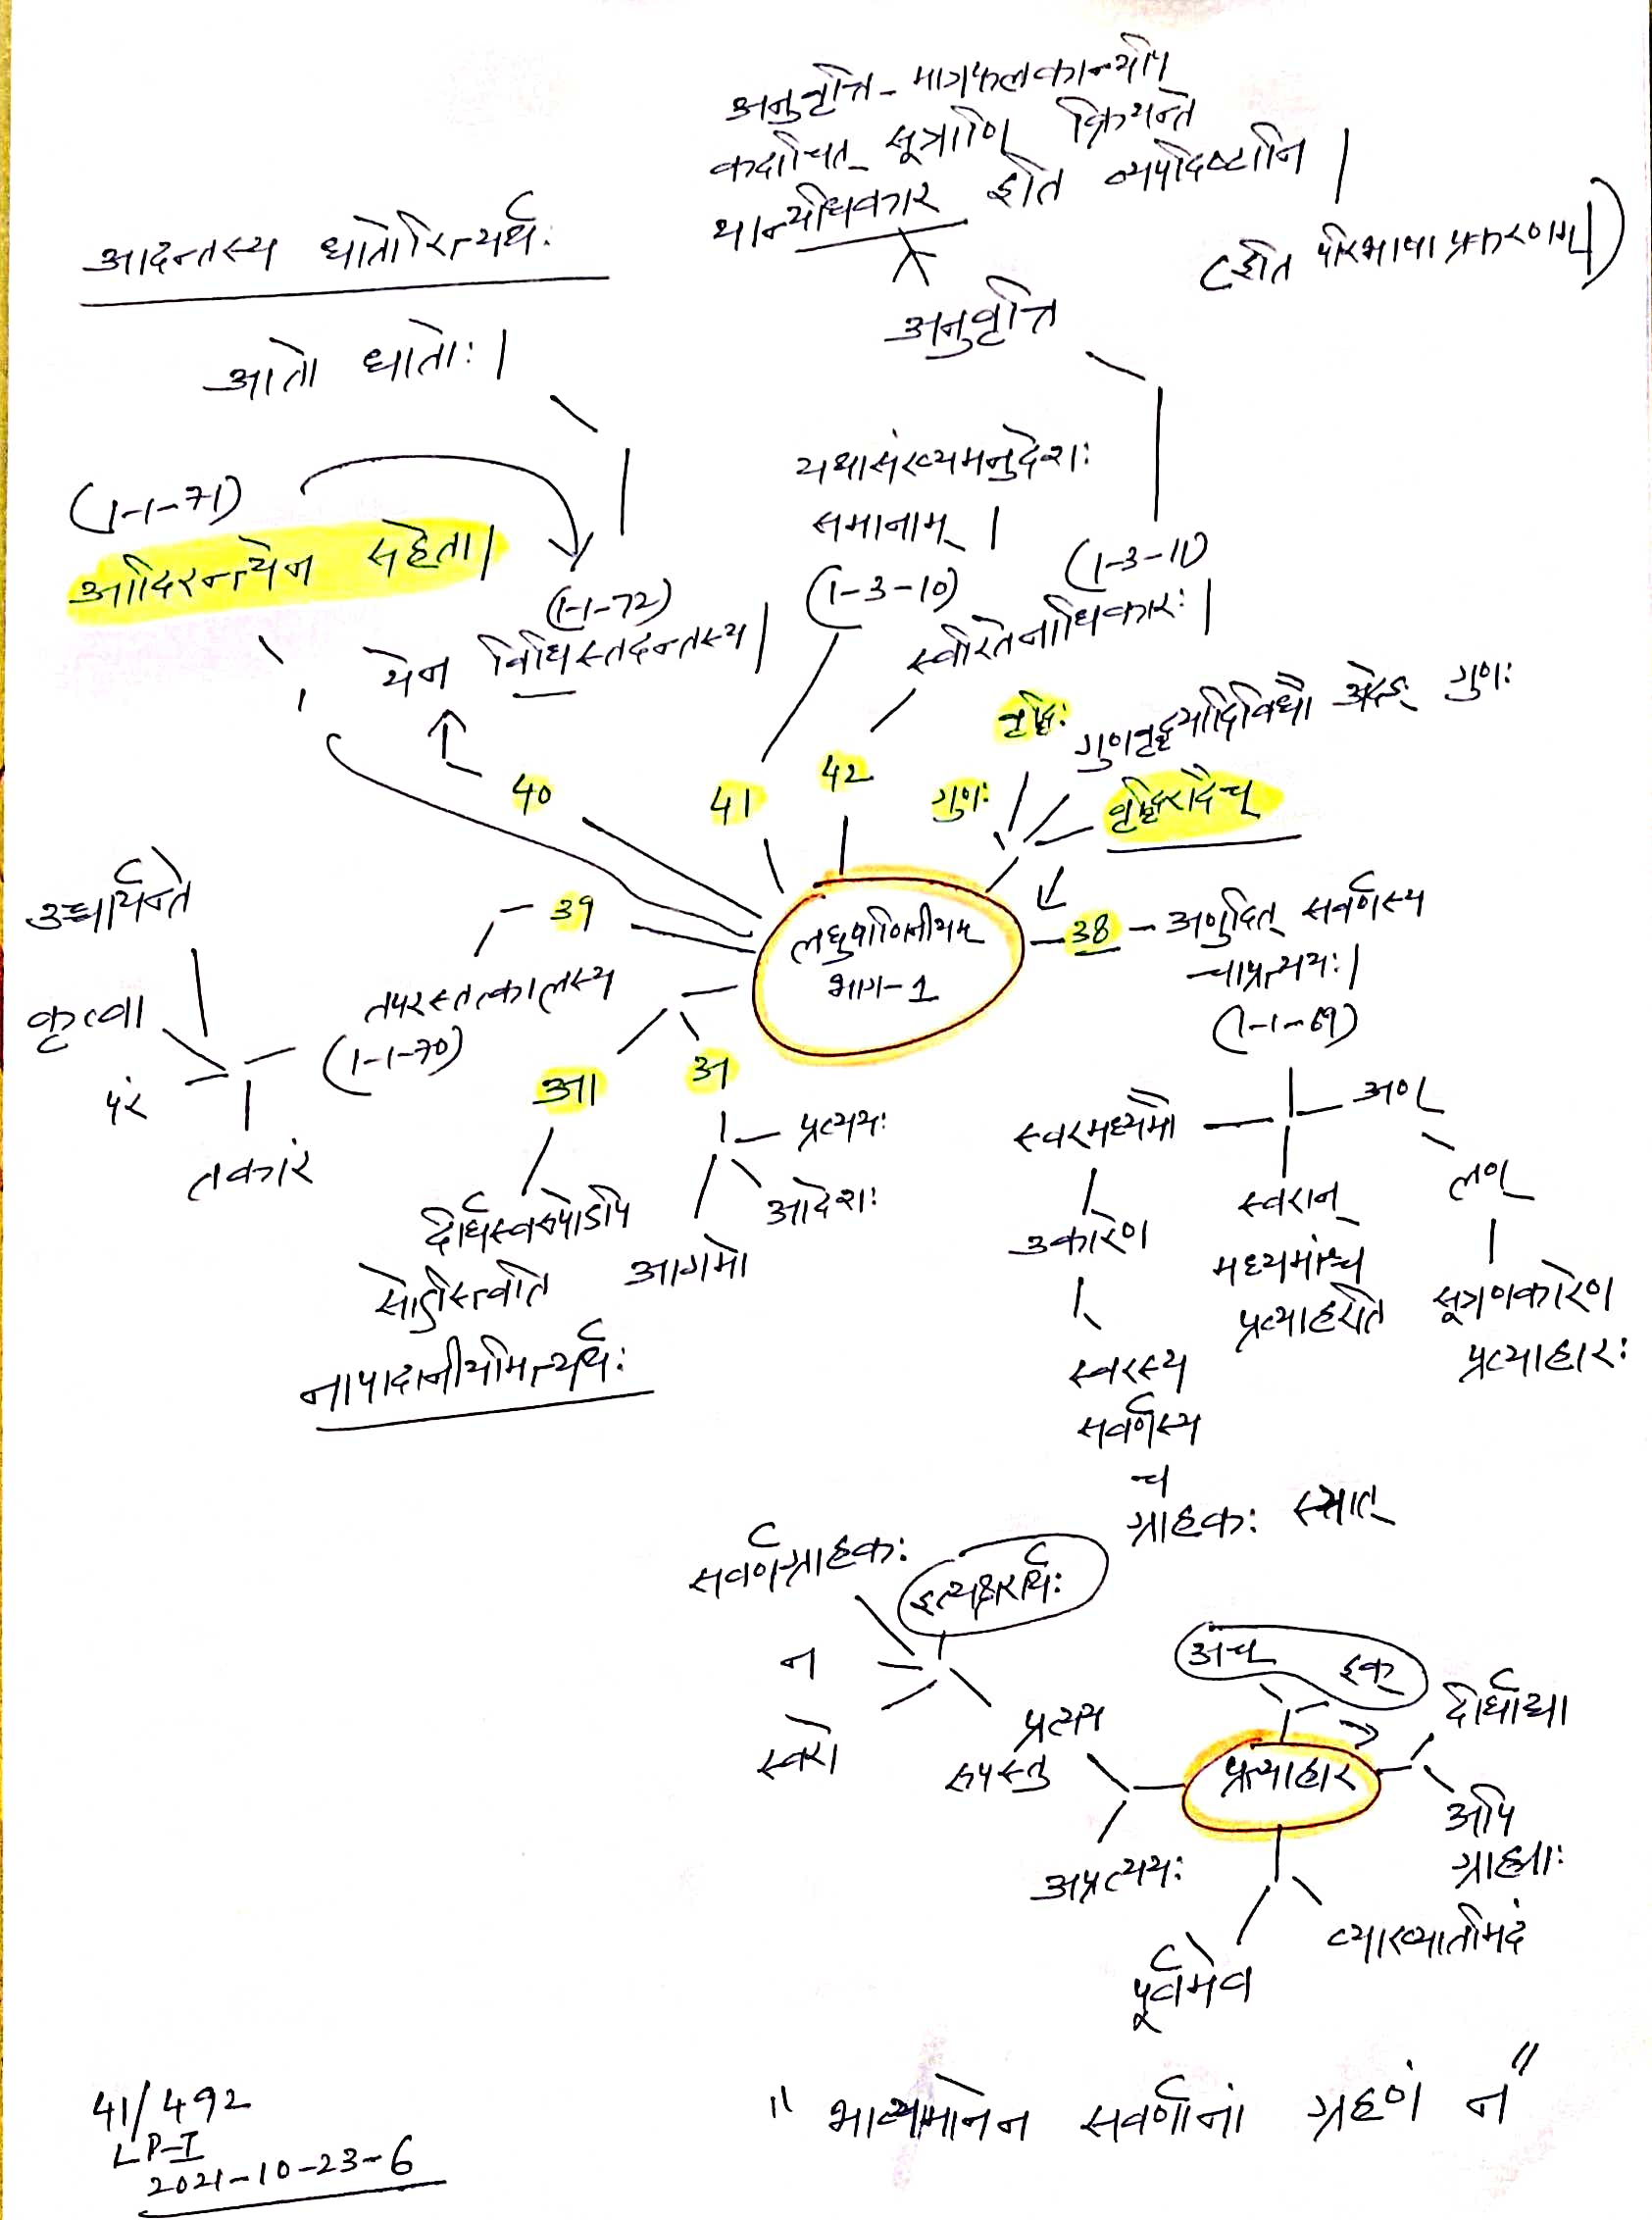 अनुवृत्ति-मार्गफलकान्यपि
कदाचित् सूत्राणि क्रियन्ते
यान्यधिकार इति व्यपदिष्टानि |
(इति परिभाषाप्रकरणम् |)
अनुवृत्ति
आदन्तस्य धातोरित्यर्थः
आतो धातोः |
(1-1-71)
आदिरन्त्येन सहेता |
(1-1-72)
येन विधिस्तदन्तस्य |
यथासंख्यमनुदेशः
समानाम् |
(1-3-10)
(1-3-11)
स्वरितेनाधिकारः |
40
41
42
वृद्धिः
गुणः
गुणवृद्ध्यादिविधौ अदेङ् गुणः
वृद्धिरादैच्
लघुपाणिनीयम्
भाग-1
38 - अणुदित् सवर्णस्य
चाप्रत्ययः |
(1-1-69)
39
तपरस्तत्कालस्य
(1-1-70)
उच्चार्यन्ते
कृत्वा
परं
तकारं
आ
दीर्घस्वरूपोऽपि
सोऽस्त्विति
नापादनीयमित्यर्थः
अ
प्रत्ययः
आदेशः
आगमो
स्वरमध्यमौ
उकारेण
स्वरस्य
सवर्णस्य
च
ग्राहकः स्यात्
स्वरान्
मध्यमांश्च
प्रत्याहरति
अण्
लण्
सूत्रणकारेण
प्रत्याहारः
सवर्णग्राहकः
इत्यक्षरार्थः
न
स्वरो
प्रत्यय
रूपस्तु
अप्रत्ययः
प्रत्याहार
अच्
इक्
दीर्घाद्या
अपि
ग्राह्याः
पूर्वमेव
व्याख्यातमिदं
"भाव्यमानेन सवर्णानां ग्रहणं न"
41/492
LP-I
2021-10-23-6